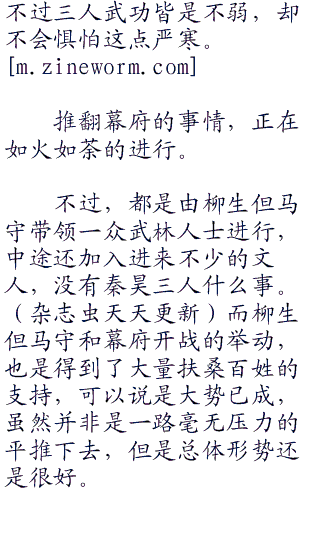 不过三人武功皆是不弱，却
不会惧怕这点严寒。
[m.zineworm.com]
推翻幕府的事情，正在
如火如荼的进行。
不过，都是由柳生但马
守带领一众武林人士进行，
中途还加入进来不少的文
人，没有秦昊三人什么事。
（杂志虫天天更新）而柳生
但马守和幕府开战的举动，
也是得到了大量扶桑百姓的
支持，可以说是大势已成，
虽然并非是一路毫无压力的
平推下去，但是总体形势还
是很好。